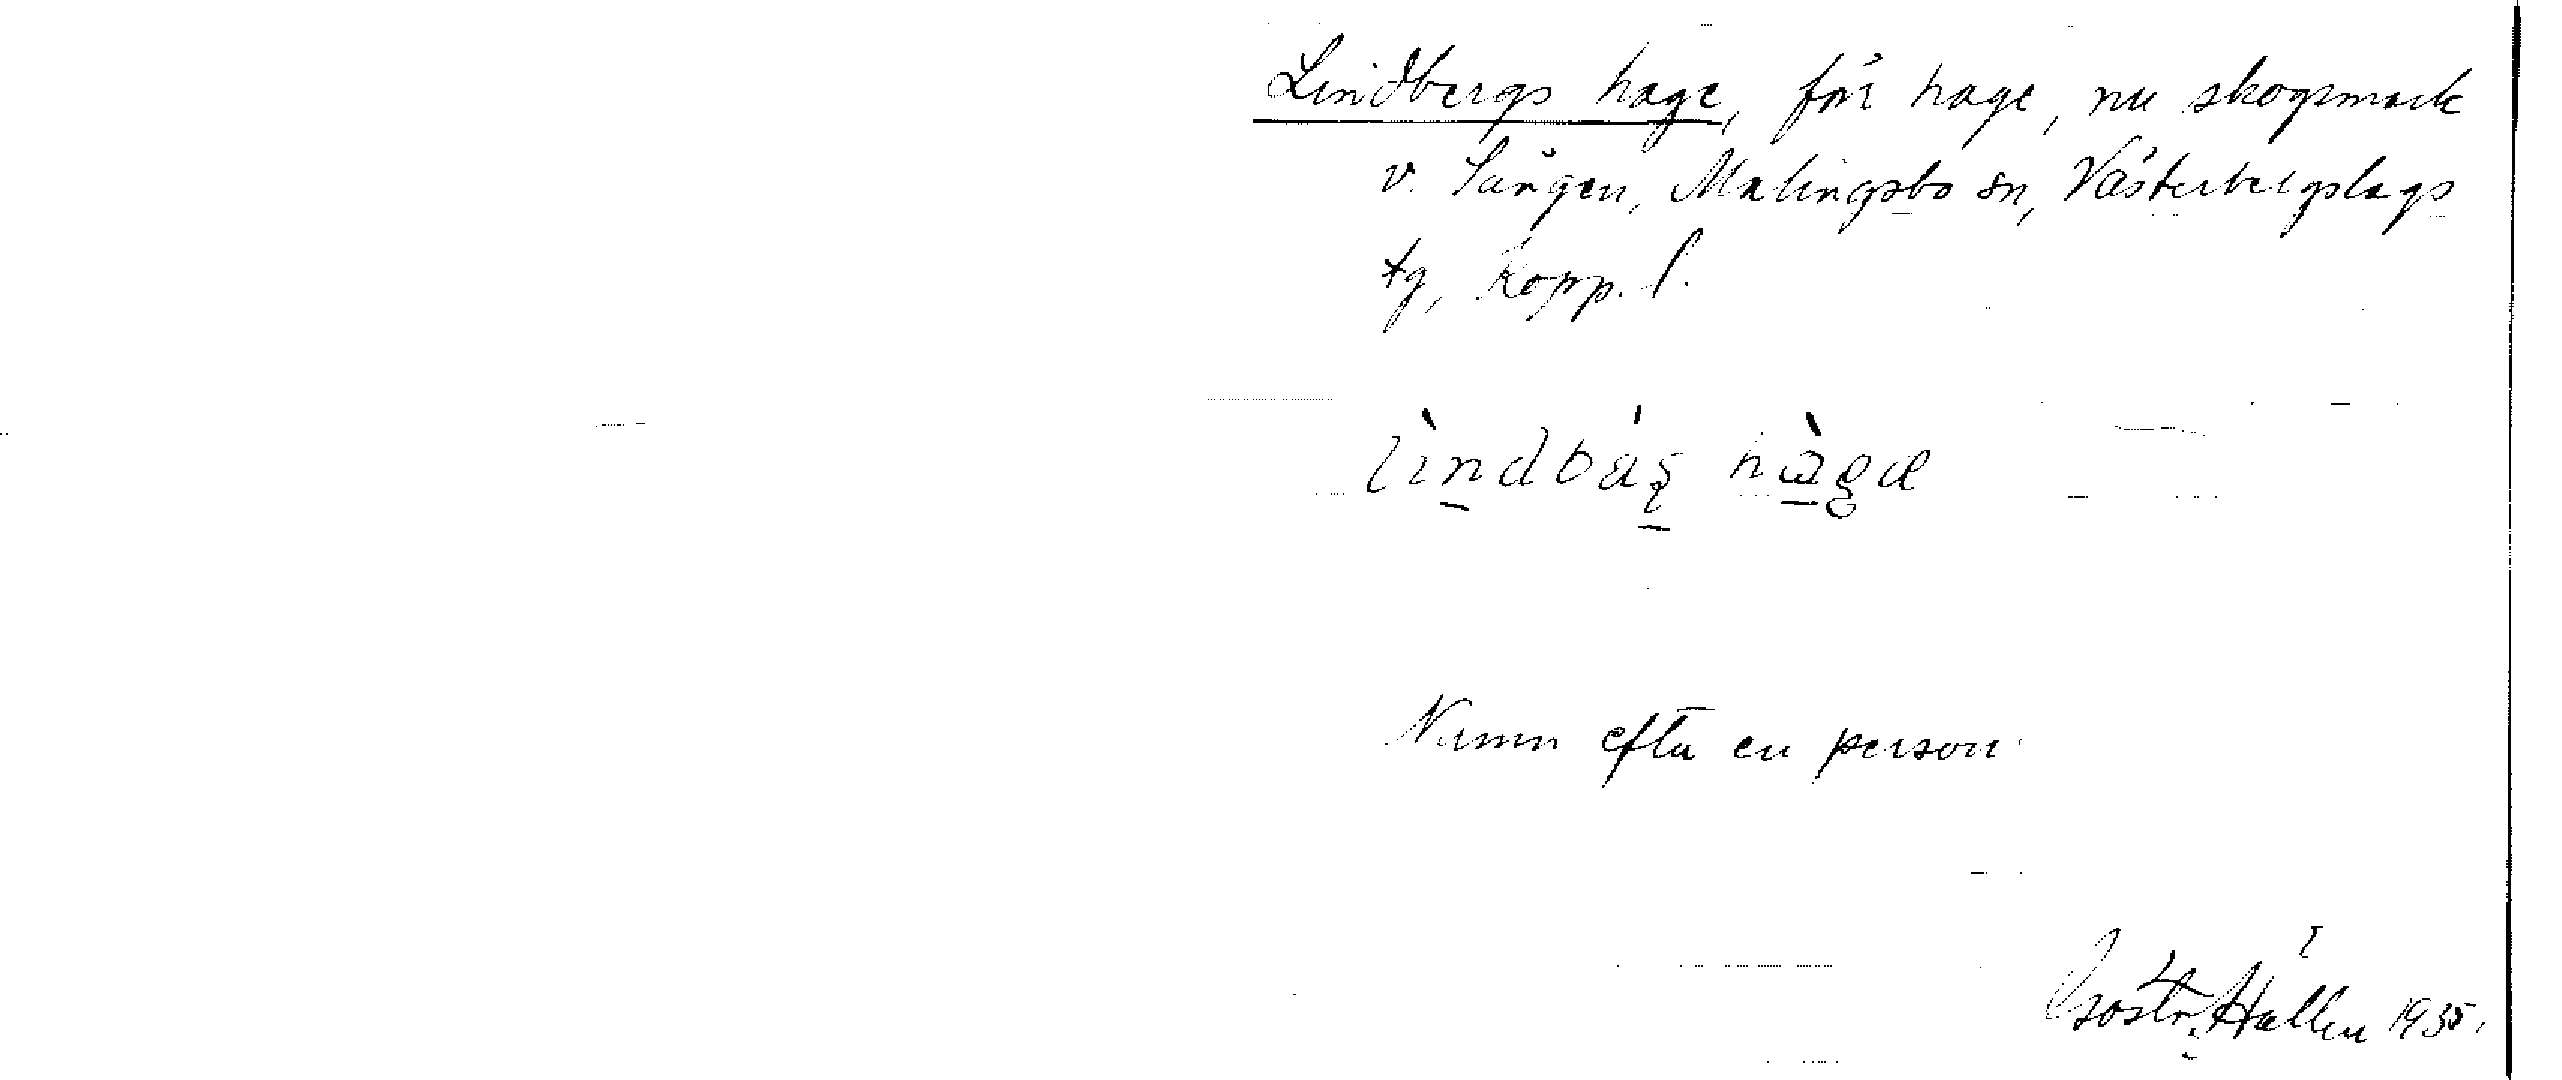 Lindbergs hage, förr hage, nu skogsmark
v. Sången, Malingsbo sn, Västerbergslags
tg, Kopp. l.
lìndbáʂ hàgæ
Namn efter en person.
Hallen 1935.